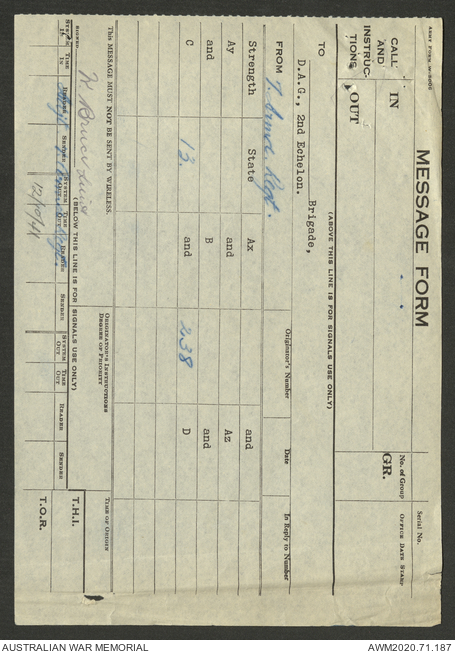 ARMY FORM W.3006
MESSAGE FORM
Serial No.
CALL
AND
INSTRUC-
TIONS
IN
OUT
No. of Group
GR.
OFFICE DATE STAMP
(ABOVE THIS LINE IS FOR SIGNALS USE ONLY)
TO
Brigade,
D.A.G., 2nd Echelon.
FROM
7.
Regt.
Originator's Number
Date
In Reply to Number
Strength State Ax and
Ay and Az
and B and
C 13. and 238 D
This MESSAGE MUST NOT BE SENT BY WIRELESS.
ORIGINATOR'S INSTRUCTIONS
DEGREE OF PRIORITY
TIME OF ORIGIN
SIGNED
Bruce
(BELOW THIS LINE IS FOR SIGNALS USE ONLY)
T.H.I.
SYSTEM IN
TIME IN
READER
SENDER
SYSTEM OUT
TIME OUT
READER
SENDER
SYSTEM OUT
TIME OUT
READER
SENDER
T.O.R.
12/10/41
AUSTRALIAN WAR MEMORIAL
AWM2020.71.187